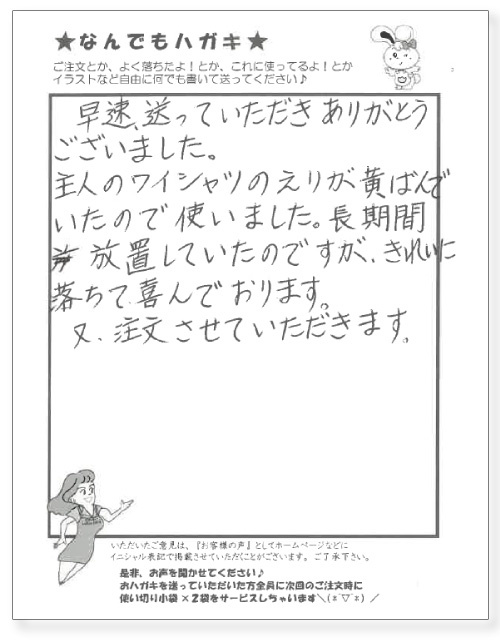 ★なんでもハガキ★
ご注文とか、よく落ちたよ！とか、これに使ってるよ！とか
イラストなど自由に何でも書いて送ってください♪
早速、送っていただきありがとう
ございました。
主人のワイシャツのえりが黄ばんで
いたので使いました。長期間
放置していたのですが、きれいに
落ちて喜んでおります。
又、注文させていただきます。
いただいたご意見は、『お客様の声』としてホームページなどに
イニシャル表記で掲載させていただくことがございます。ご了承下さい。
是非、お声を聞かせてください♪
おハガキを送っていただいた方全員に次回のご注文時に
使い切り小袋×2袋をサービスしちゃいます＼(*^▽^*)／